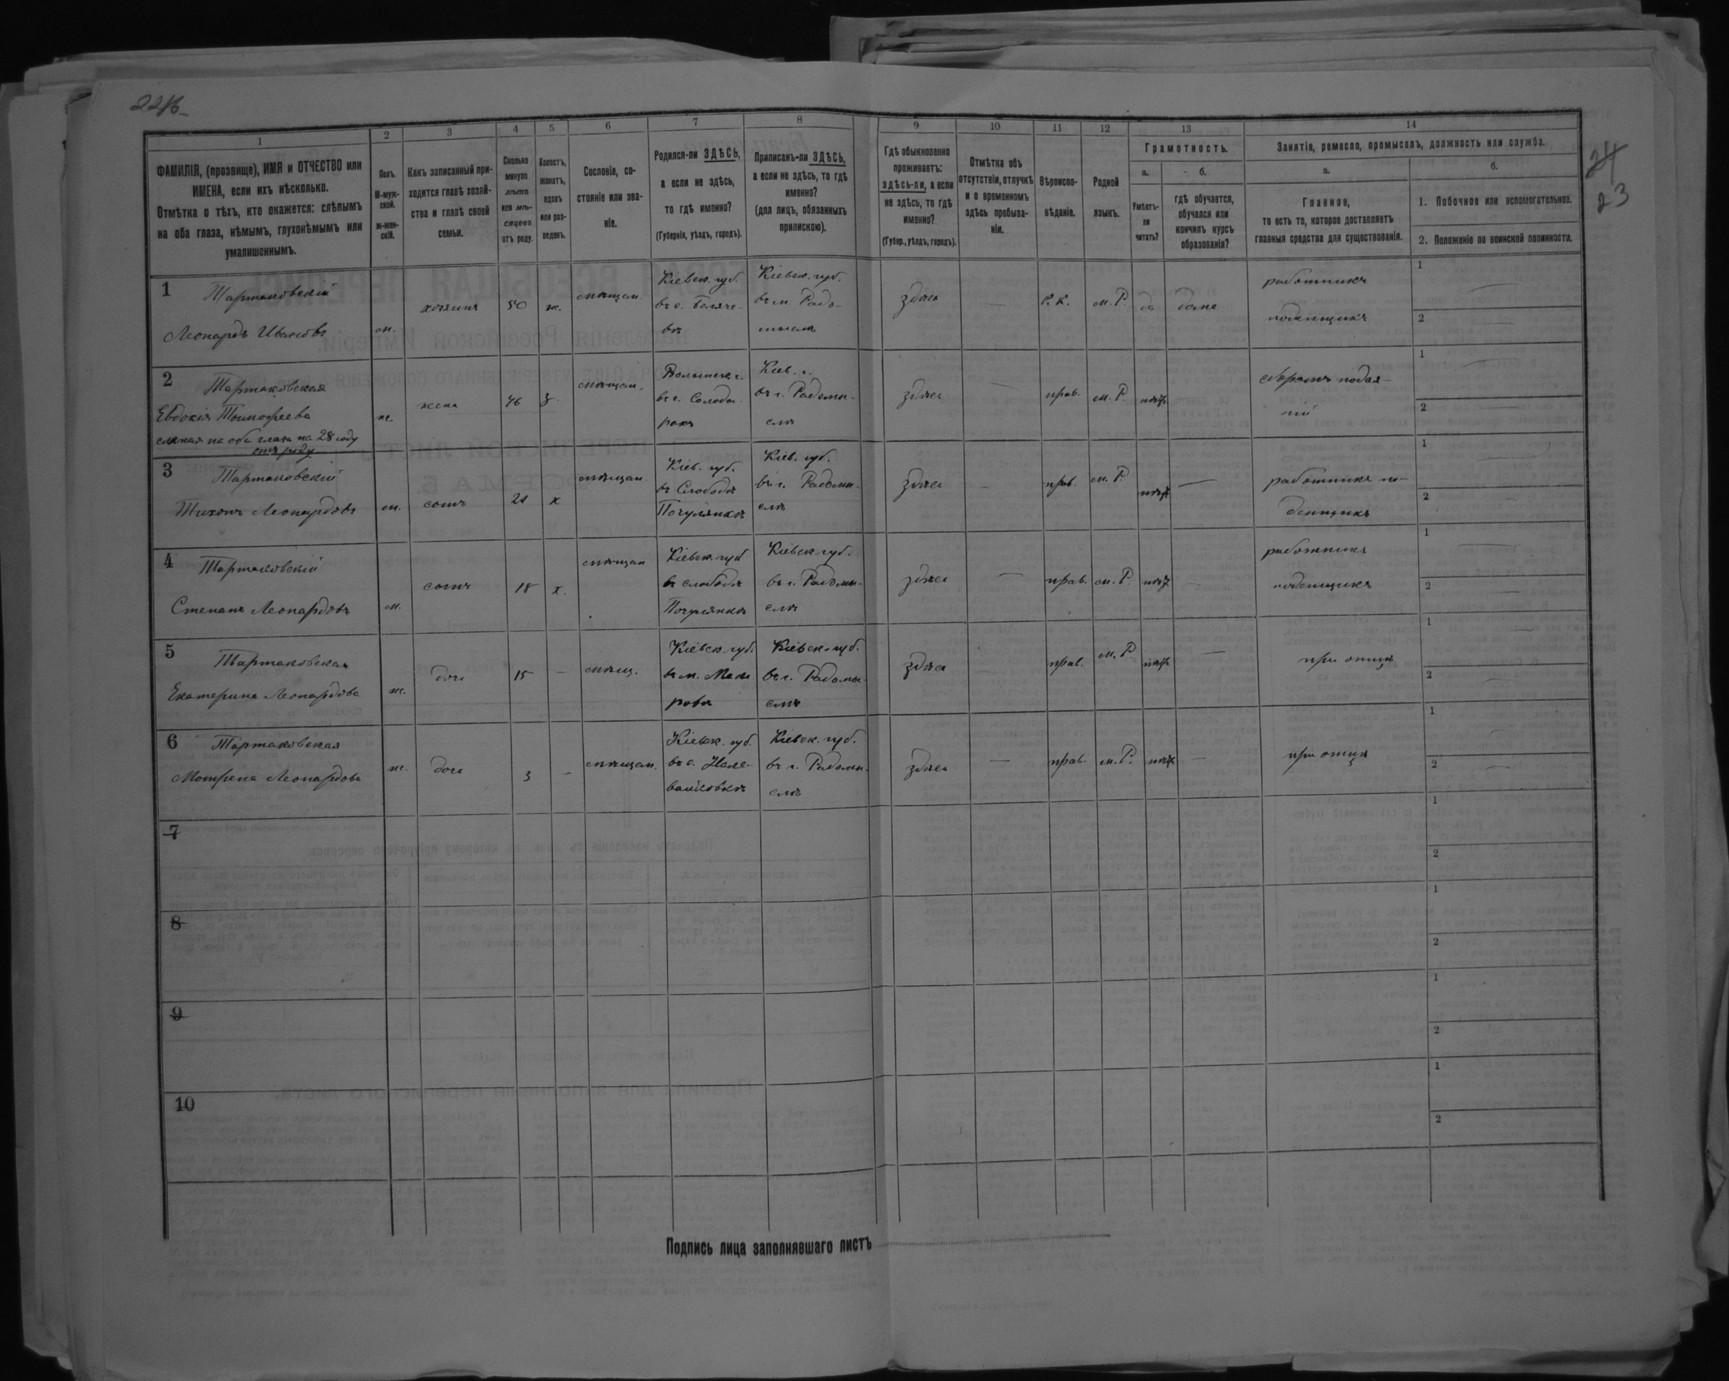 22 1б
24
23
1
2
3
4
5
6
7
8
9
10
11
12
13
14
ФАМИЛІЯ, (прозвище), ИМЯ и ОТЧЕСТВО или
ИМЕНА, если ихъ нѣсколько.
Отмѣтка о тѣхъ, кто окажется: слѣпымъ
на оба глаза, нѣмымъ, глухонѣмымъ или
умалишеннымъ.
Полъ.
М-муж-
ской.
Ж-жен-
скій.
Какъ записанный при-
ходится главѣ хозяй-
ства и главѣ своей
семьи.
Сколько
минуло
лѣтъ
или мѣ-
сяцевъ
отъ роду.
Холостъ,
женатъ,
вдовъ
или раз-
веденъ.
Сословіе, со-
стояніе или зва-
ніе.
Родился-ли ЗДѢСЬ,
а если не здѣсь,
то гдѣ именно?
(Губернія, уѣздъ, городъ).
Приписанъ-ли ЗДѢСЬ,
а если не здѣсь, то гдѣ
именно?
(для лицъ, обязанныхъ
припискою).
Гдѣ обыкновенно
проживаетъ:
здѣсь-ли, а если
не здѣсь, то гдѣ
именно?
(Губер., уѣздъ, городъ).
Отмѣтка объ
отсутствіи, отлучкѣ
и о временномъ
здѣсь пребыва-
ніи.
Вѣроиспо-
вѣданіе.
Родной
языкъ.
Грамотность.
а.
б.
Умѣетъ-
ли
читать?
гдѣ обучается,
обучался или
кончилъ курсъ
образованія?
Занятія, ремесло, промыселъ, должность или служба.
а.
б.
Главное,
то есть то, которое доставляетъ
главныя средства для существованія.
1. Побочное или вспомогательное.
2. Положеніе по воинской повинности.
1 Тартаковскій
Леонардъ Ивановъ
м.
хозяинъ
50
ж.
мѣщан.
Кіевск. губ.
въ с.
Кіевск. губ.
въ м. Радо-
мыслѣ
здѣсь
—
Р. К.
м. Р.
да
дома
работникъ
поденщикъ
1
2
2 Тартаковская
Евдокія Тимофеева
слѣпая на оба глаза на 28 году
отъ роду
ж.
жена
46
з.
мѣщан.
Волынск. г.
въ с.
Кіев. г.
въ г. Радомы-
слѣ
здѣсь
—
прав.
м. Р.
нѣтъ
сборомъ подая-
ній
1
2
3 Тартаковскій
Тихонъ Леонардовъ
м.
сынъ
21
х
мѣщан
Кіев. губ.
въ Слободѣ
Погулянкѣ
Кіев. губ.
въ г. Радомы-
слѣ
здѣсь
—
прав.
м. Р.
нѣтъ
—
работникъ по-
денщикъ
1
2
4 Тартаковскій
Степанъ Леонардовъ
м.
сынъ
18
х.
мѣщан
Кіевск. губ
въ слободѣ
Погулянкѣ
Кіевск. губ.
въ г. Радомы-
слѣ
здѣсь
—
прав.
м. Р.
нѣтъ
—
работникъ
поденщикъ
1
2
5 Тартаковская
Екатерина Леонардова
ж.
дочь
15
—
мѣщ.
Кіевск. губ.
въ м. Мака
ровѣ
Кіевск. губ.
въ г. Радомы-
слѣ
здѣсь
—
прав.
м. Р.
нѣтъ
—
при отцѣ
1
2
6 Тартаковская
Мотрена Леонардова
ж.
дочь
3
—
мѣщан.
Кіевск. губ.
въ с. Нале-
вайковкѣ
Кіевск. губ.
въ г. Радомы-
слѣ
здѣсь
—
прав.
м. Р.
нѣтъ
—
при отцѣ
1
2
7
1
2
8
1
2
9
1
2
10
1
2
Подпись лица заполнявшаго листъ